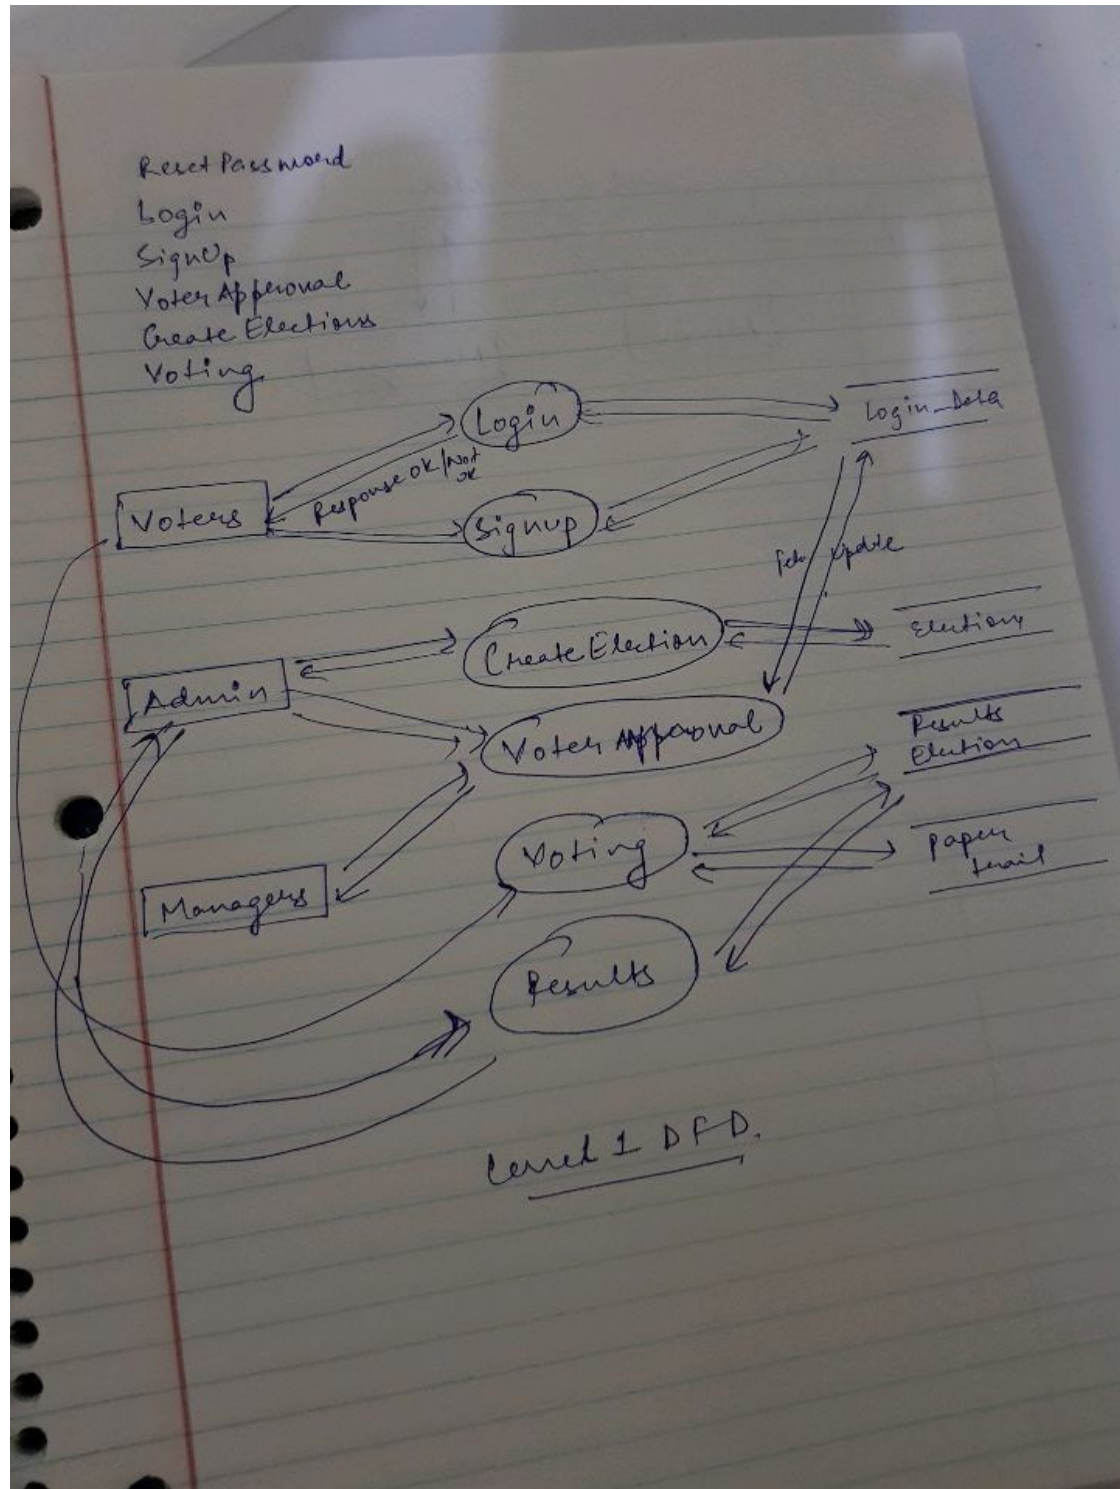 Reset Password
Login
SignUp
Voter Approval
Create Elections
Voting
Login
Login_Data
Response OK/Not
OK
Voters
Signup
Update
Create Election
Elections
Admin
Voter Approval
Results
Election
Voting
paper
trail
Managers
Results
Level 1 DFD.